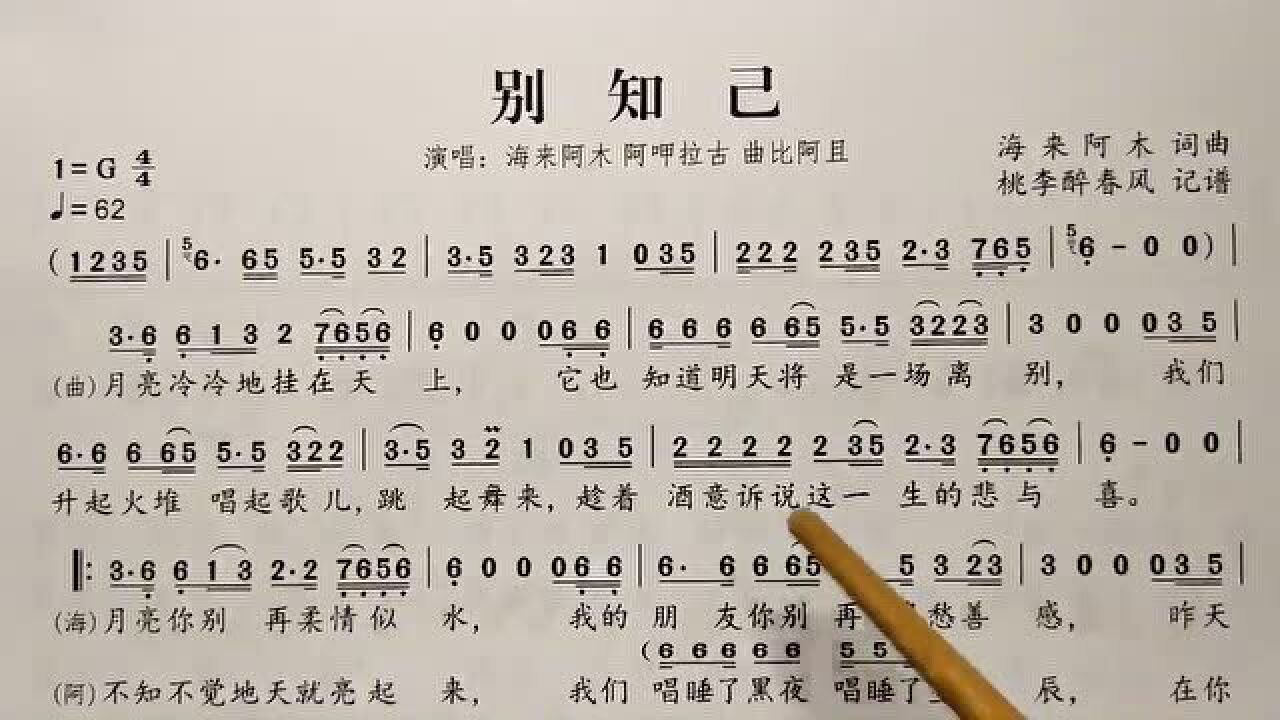 别知己
演唱：海来阿木 阿呷拉古 曲比阿且
海来阿木 词曲
桃李醉春风 记谱
1=G 4/4
♩=62
(1235 | 56· 65 5·5 32 | 3·5 323 1 035 | 222 235 2·3 765 | 56 - 0 0) |
3·6 613 2 7656 | 6 0 0 066 | 666 665 5·5 3223 | 3 0 0 035 |
(曲)月亮冷冷地挂在天 上， 它也 知道明天将 是一场离 别， 我们
6·6 665 5·5 322 | 3·5 32 1 035 | 2222 235 2·3 7656 | 6 - 0 0 |
升起火堆 唱起歌儿，跳 起舞来，趁着 酒意诉说这一 生的悲与 喜。
‖: 3·6 613 2·2 7656 | 6 0 0 066 | 6· 6 665 5 323 | 3 0 0 035 |
(海)月亮你别 再柔情似 水， 我的 朋 友你别 再 愁善 感， 昨天
(666 66 55
(阿)不知不觉地天就亮起 来， 我们 唱睡了黑夜 唱睡了 辰， 在你